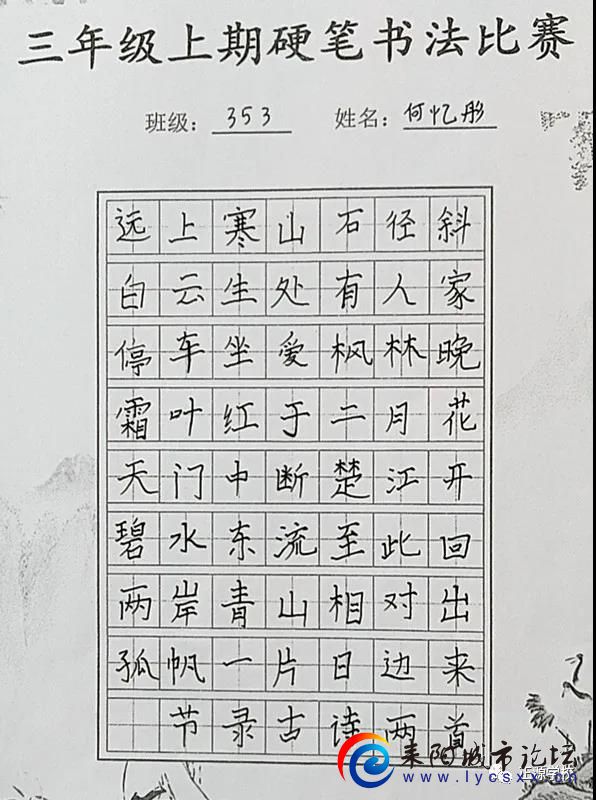 三年级上期硬笔书法比赛
班级：353 姓名：何忆彤
远上寒山石径斜
白云生处有人家
停车坐爱枫林晚
霜叶红于二月花
天门中断楚江开
碧水东流至此回
两岸青山相对出
孤帆一片日边来
节录古诗两首
耒阳城市论坛
www.lycsxx.com
正源学校